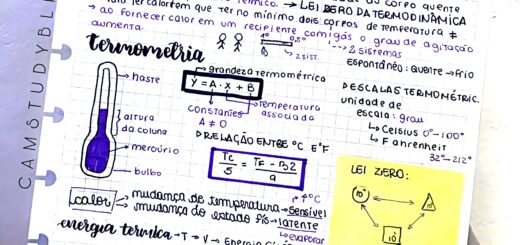 do corpo quente
térmico. → LEI ZERO DA TERMODINÂMICA
calor tem que ter no mínimo dois corpos de temperatura ≠
→ ao fornecer calor em um recipiente com gás o grau de agitação
aumenta.
2 sistemas
2 sist.
espontâneo: quente → frio
termometria
haste
altura
da coluna
mercúrio
bulbo
grandeza termométrica
Y = A · X + B
constantes
A ≠ 0
temperatura
associada
RELAÇÃO ENTRE °C E °F
Tc/5 = TF - 32/9
DESCALAS TERMOMÉTRIC.
unidade de
escala: grau
↳ Celsius 0°-100°
↳ Fahrenheit
32°-212°
LEI ZERO:
10°
10°
10°
calor
mudança de temperatura → sensível
↑°C
mudança do estado fís → latente
↳ evaporar
energia térmica → T → V → Energia
CAMSTUDYBL